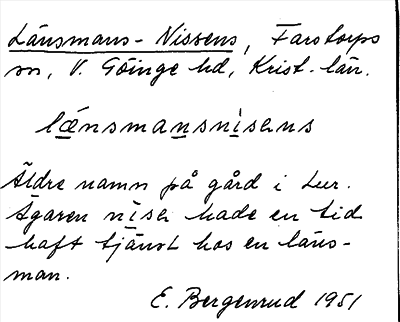 Länsmans-Nissens, Farstorps
sn, V. Göinge hd, Krist. län.
lænsmansnisens
Äldre namn på gård i Lur.
Ägaren nisen hade en tid
haft tjänst hos en läns-
man.
E. Bergenrud 1951